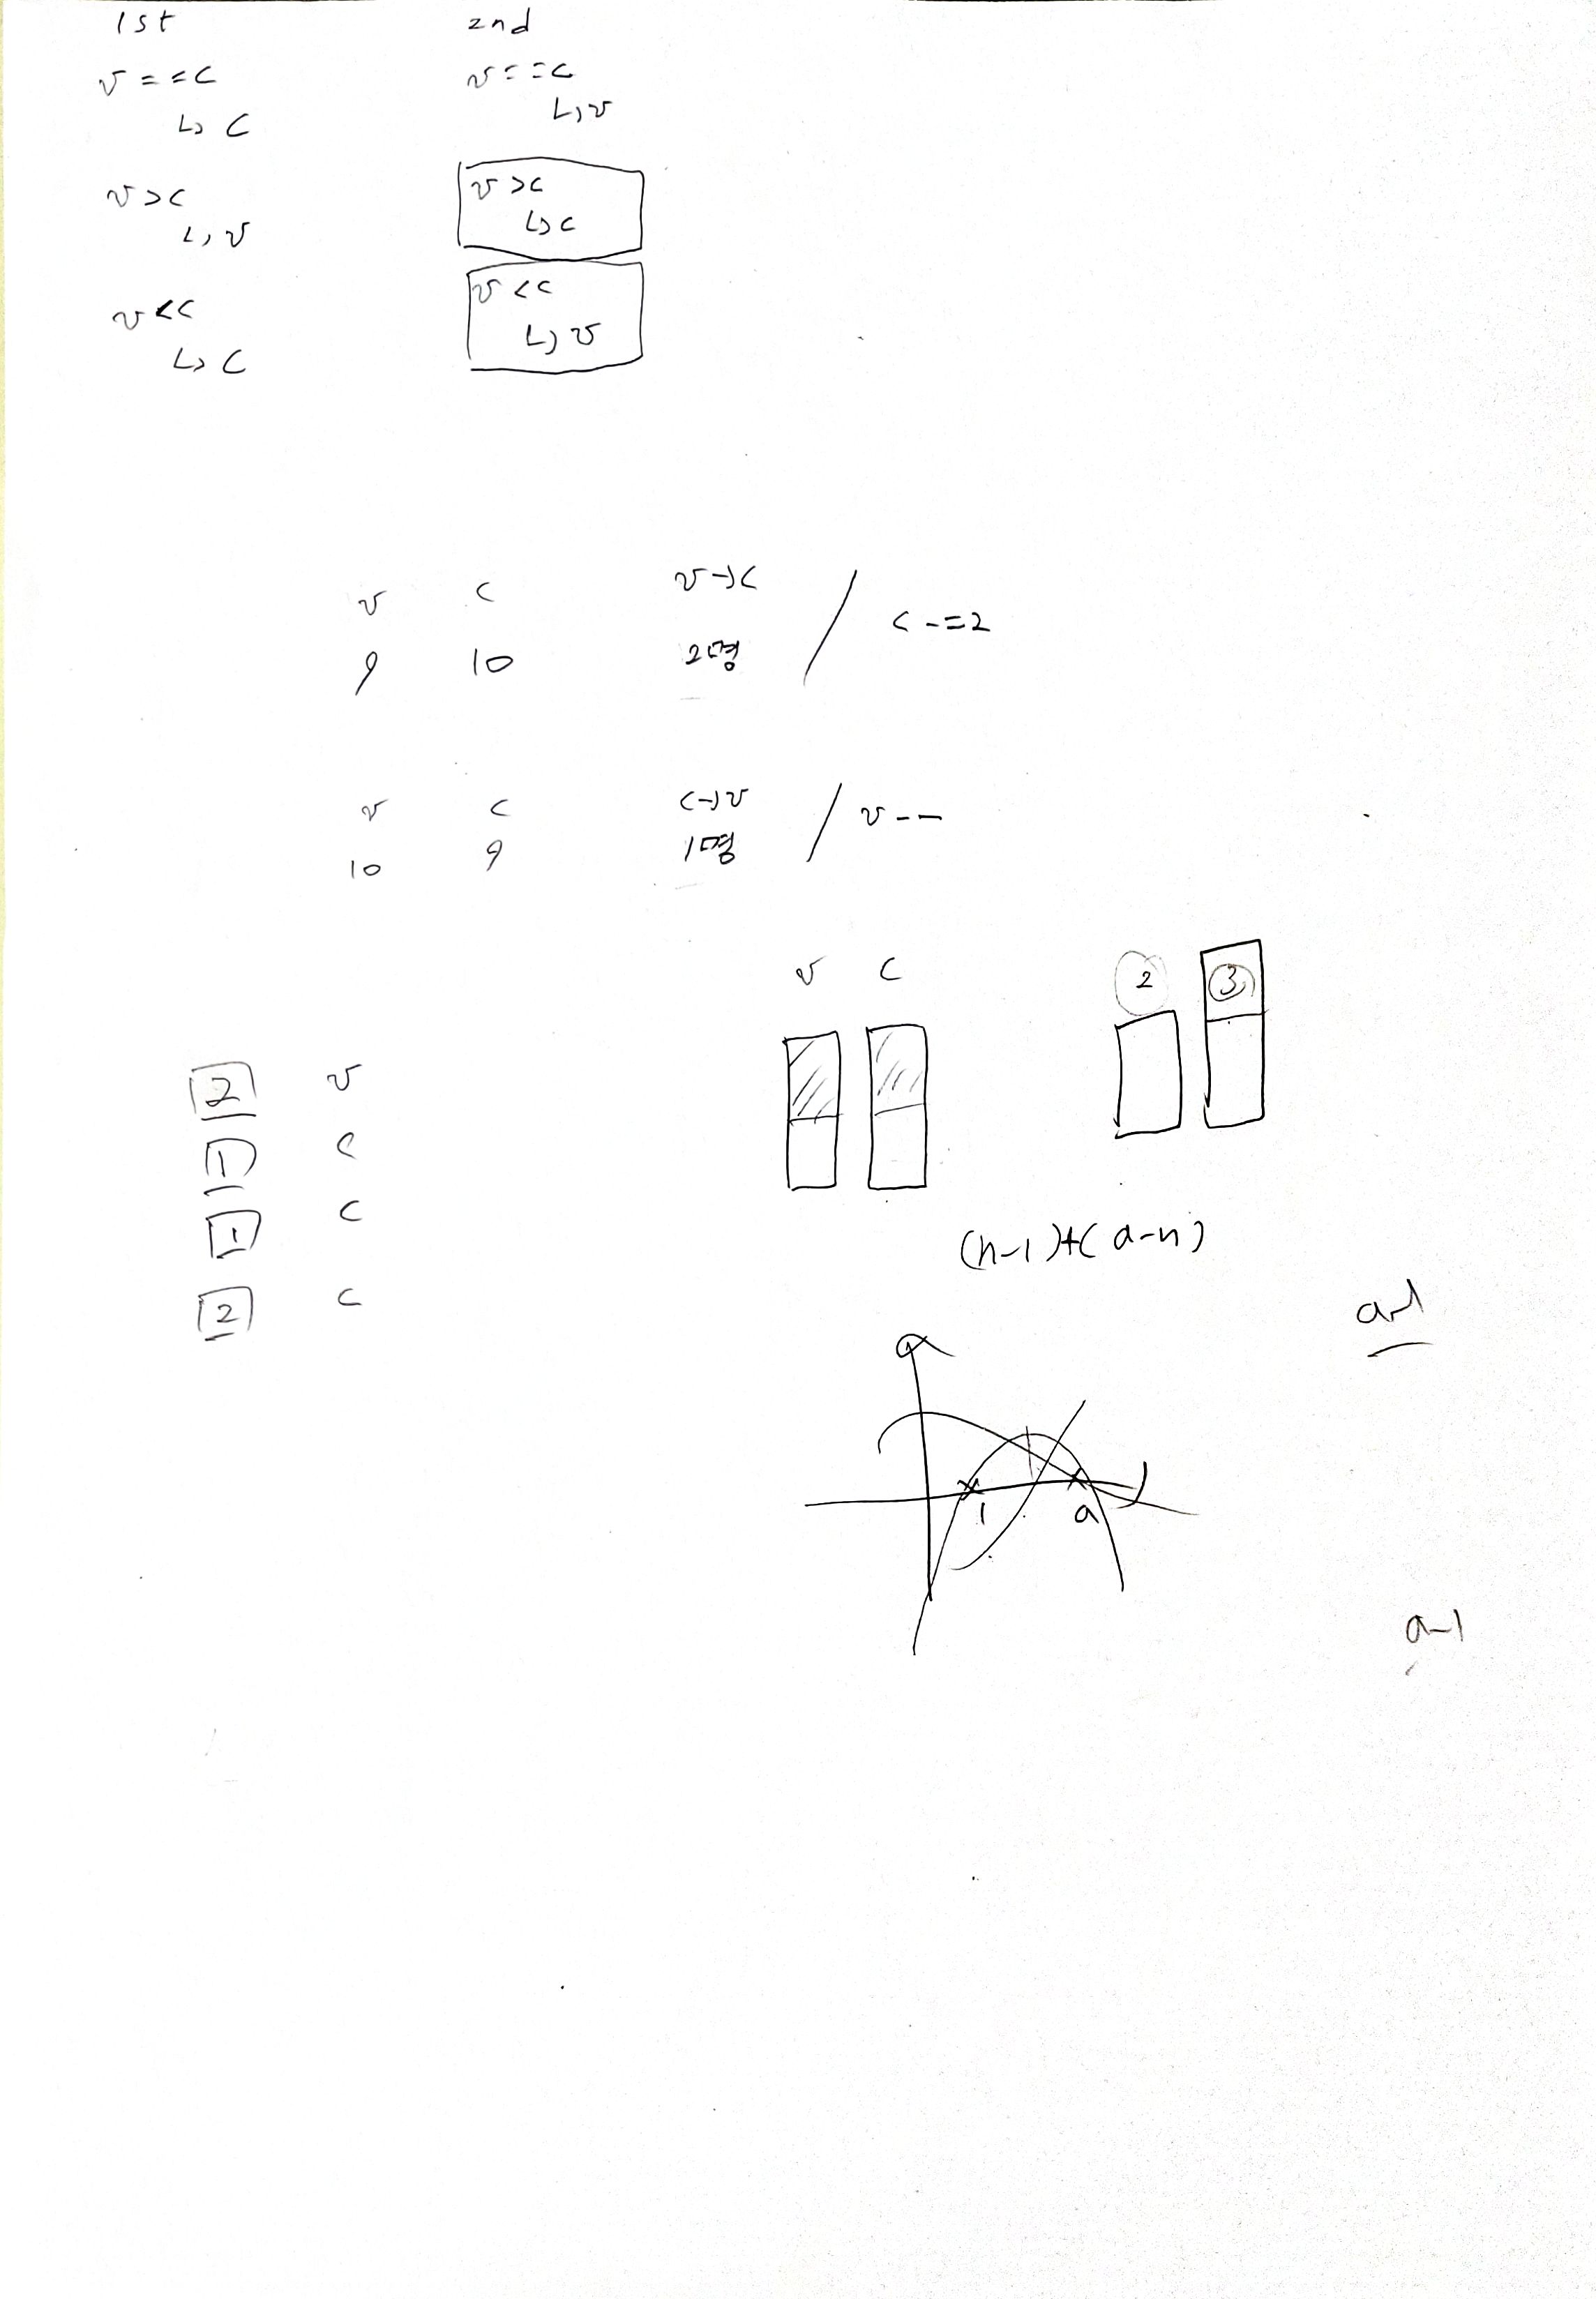 1st 2nd
v==c v==c
↳ c ↳ v
v>c v>c
↳ v ↳ c
v<c v<c
↳ c ↳ v
v c v→c / c-=2
9 10 2명
v c c→v / v--
10 9 1명
v c 2 3
2 v
1 c
1 c
2 c
(n-1)+(a-n)
a-1
1 a
a-1